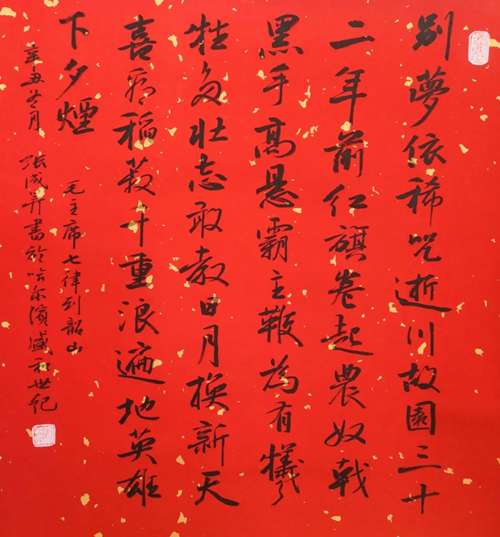 别夢依稀咒逝川故園三十
二年前红旗卷起農奴戟
黑手高悬霸主鞭為有犧
牲多壮志敢教日月换新天
喜看稻菽千重浪遍地英雄
下夕煙
毛主席七律到韶山
辛丑 月 张成 書於哈尔濱盛和世纪